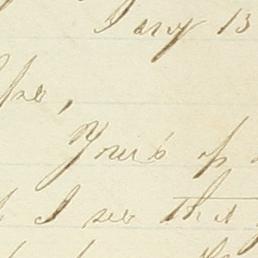 Jany 13
Your's of
I see that